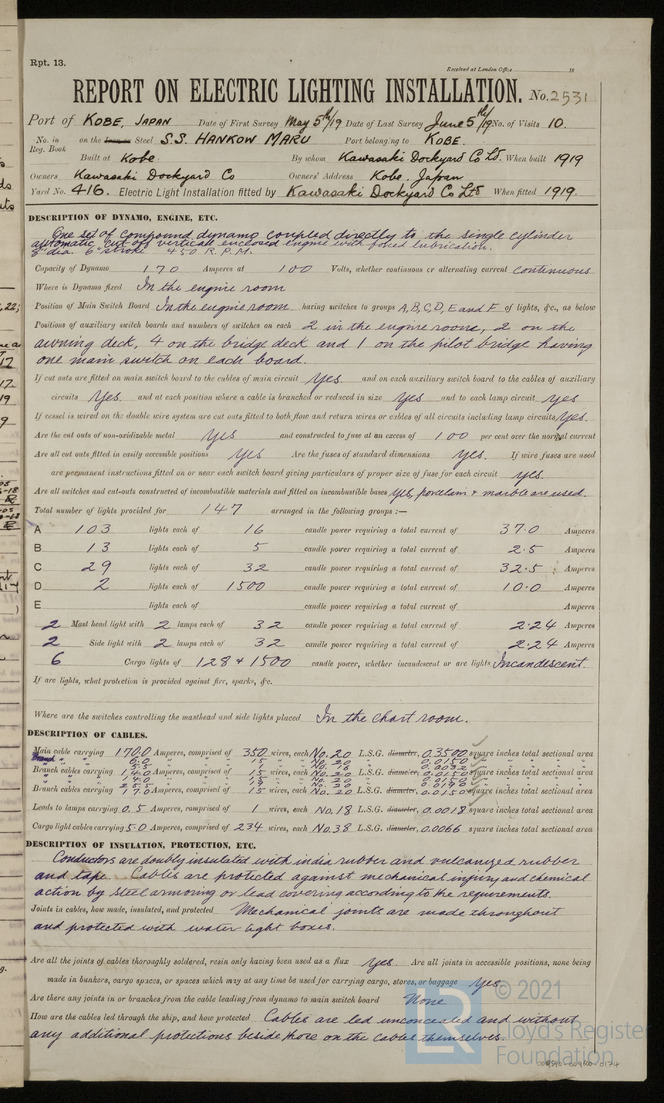 Rpt. 13.
Received at London Office 19
REPORT ON ELECTRIC LIGHTING INSTALLATION. No. 2531
Port of KOBE, JAPAN Date of First Survey May 5th/19 Date of Last Survey June 5th/19 No. of Visits 10.
No. in Reg. Book on the Iron Steel S.S. HANKOW MARU Port belonging to KOBE.
Built at Kobe By whom Kawasaki Dockyard Co Ltd. When built 1919
Owners Kawasaki Dockyard Co Owners' Address Kobe, Japan
Yard No. 416. Electric Light Installation fitted by Kawasaki Dockyard Co Ltd When fitted 1919.
DESCRIPTION OF DYNAMO, ENGINE, ETC.
One set of compound dynamo coupled directly to the single cylinder
automatic cut off vertical enclosed engine with forced lubrication.
8" dia. 6" stroke 450 R.P.M.
Capacity of Dynamo 170 Amperes at 100 Volts, whether continuous or alternating current continuous
Where is Dynamo fixed In the engine room
Position of Main Switch Board In the engine room having switches to groups A, B, C, D, E and F of lights, &c., as below
Positions of auxiliary switch boards and numbers of switches on each 2 in the engine room, 2 on the
awning deck, 4 on the bridge deck and 1 on the pilot bridge having
one main switch on each board.
If cut outs are fitted on main switch board to the cables of main circuit Yes and on each auxiliary switch board to the cables of auxiliary
circuits Yes and at each position where a cable is branched or reduced in size Yes and to each lamp circuit Yes
If vessel is wired on the double wire system are cut outs fitted to both flow and return wires or cables of all circuits including lamp circuits Yes.
Are the cut outs of non-oxidizable metal Yes and constructed to fuse at an excess of 100 per cent over the normal current
Are all cut outs fitted in easily accessible positions Yes Are the fuses of standard dimensions Yes. If wire fuses are used
are permanent instructions fitted on or near each switch board giving particulars of proper size of fuse for each circuit yes.
Are all switches and cut-outs constructed of incombustible materials and fitted on incombustible bases Yes, porcelain & marble are used.
Total number of lights provided for 147 arranged in the following groups :—
A 103 lights each of 16 candle power requiring a total current of 37.0 Amperes
B 13 lights each of 5 candle power requiring a total current of 2.5 Amperes
C 29 lights each of 32 candle power requiring a total current of 32.5 Amperes
D 2 lights each of 1500 candle power requiring a total current of 10.0 Amperes
E lights each of candle power requiring a total current of Amperes
2 Mast head light with 2 lamps each of 32 candle power requiring a total current of 2.24 Amperes
2 Side light with 2 lamps each of 32 candle power requiring a total current of 2.24 Amperes
6 Cargo lights of 128 & 1500 candle power, whether incandescent or arc lights Incandescent.
If arc lights, what protection is provided against fire, sparks, &c.
Where are the switches controlling the masthead and side lights placed In the Chart room.
DESCRIPTION OF CABLES.
Main cable carrying 170.0 Amperes, comprised of 350 wires, each No. 20 L.S.G. diameter, 0.3500 square inches total sectional area
Branch cables carrying Amperes, comprised of 15 wires, each No. 20 L.S.G. diameter, 0.0150 square inches total sectional area
Branch cables carrying 17.0 Amperes, comprised of 15 wires, each No. 20 L.S.G. diameter, 0.0150 square inches total sectional area
Leads to lamps carrying 0.5 Amperes, comprised of 1 wires, each No. 18 L.S.G. diameter, 0.0018 square inches total sectional area
Cargo light cables carrying 5.0 Amperes, comprised of 234 wires, each No. 38 L.S.G. diameter, 0.0066 square inches total sectional area
DESCRIPTION OF INSULATION, PROTECTION, ETC.
Conductors are doubly insulated with india rubber and vulcanized rubber
and tape. Cables are protected against mechanical injury and chemical
action by steel armoring or lead covering according to the requirements.
Joints in cables, how made, insulated, and protected Mechanical joints are made throughout
and protected with water tight boxes.
Are all the joints of cables thoroughly soldered, resin only having been used as a flux Yes Are all joints in accessible positions, none being
made in bunkers, cargo spaces, or spaces which may at any time be used for carrying cargo, stores, or baggage Yes
Are there any joints in or branches from the cable leading from dynamo to main switch board None
How are the cables led through the ship, and how protected Cables are led unconcealed and without
any additional protections beside those on the cables themselves.
LR
© 2021
Lloyd's Register
Foundation